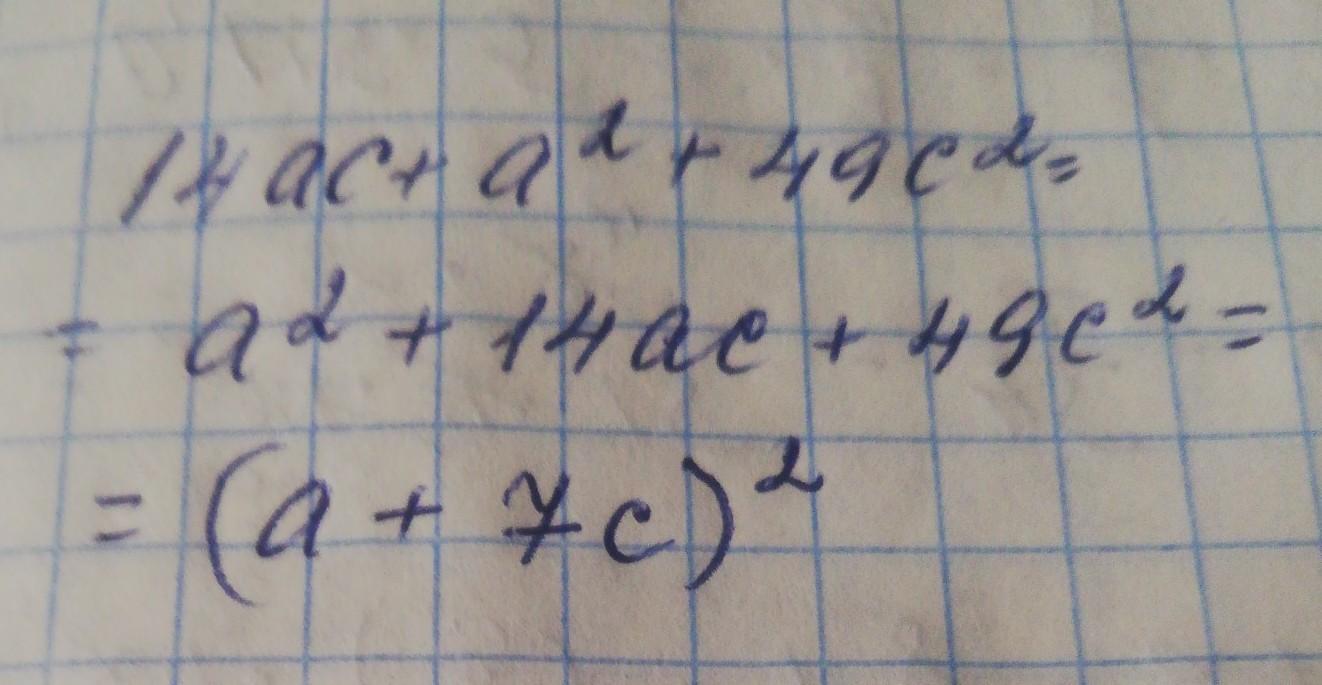 14ac + a² + 49c² =
= a² + 14ac + 49c² =
= (a + 7c)²